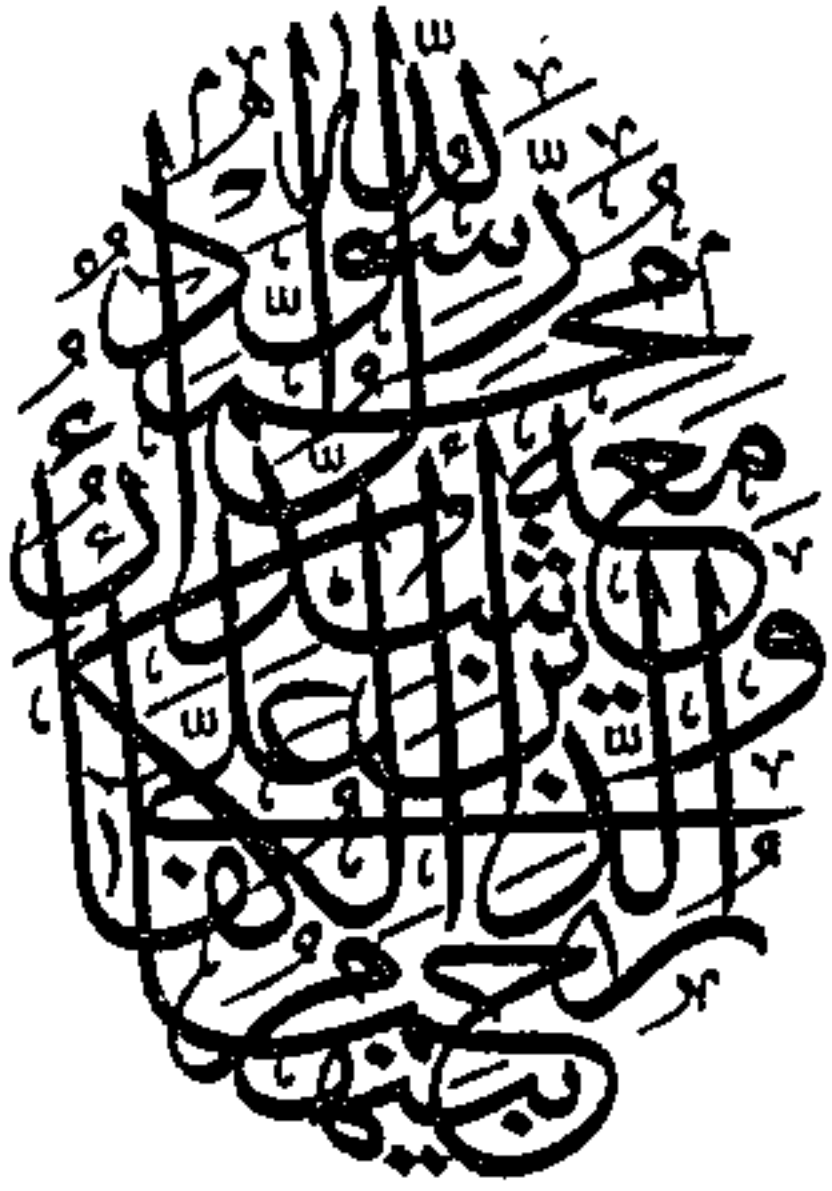 محمد رسول الله
والذين معه
أشداء على الكفار
رحماء بينهم